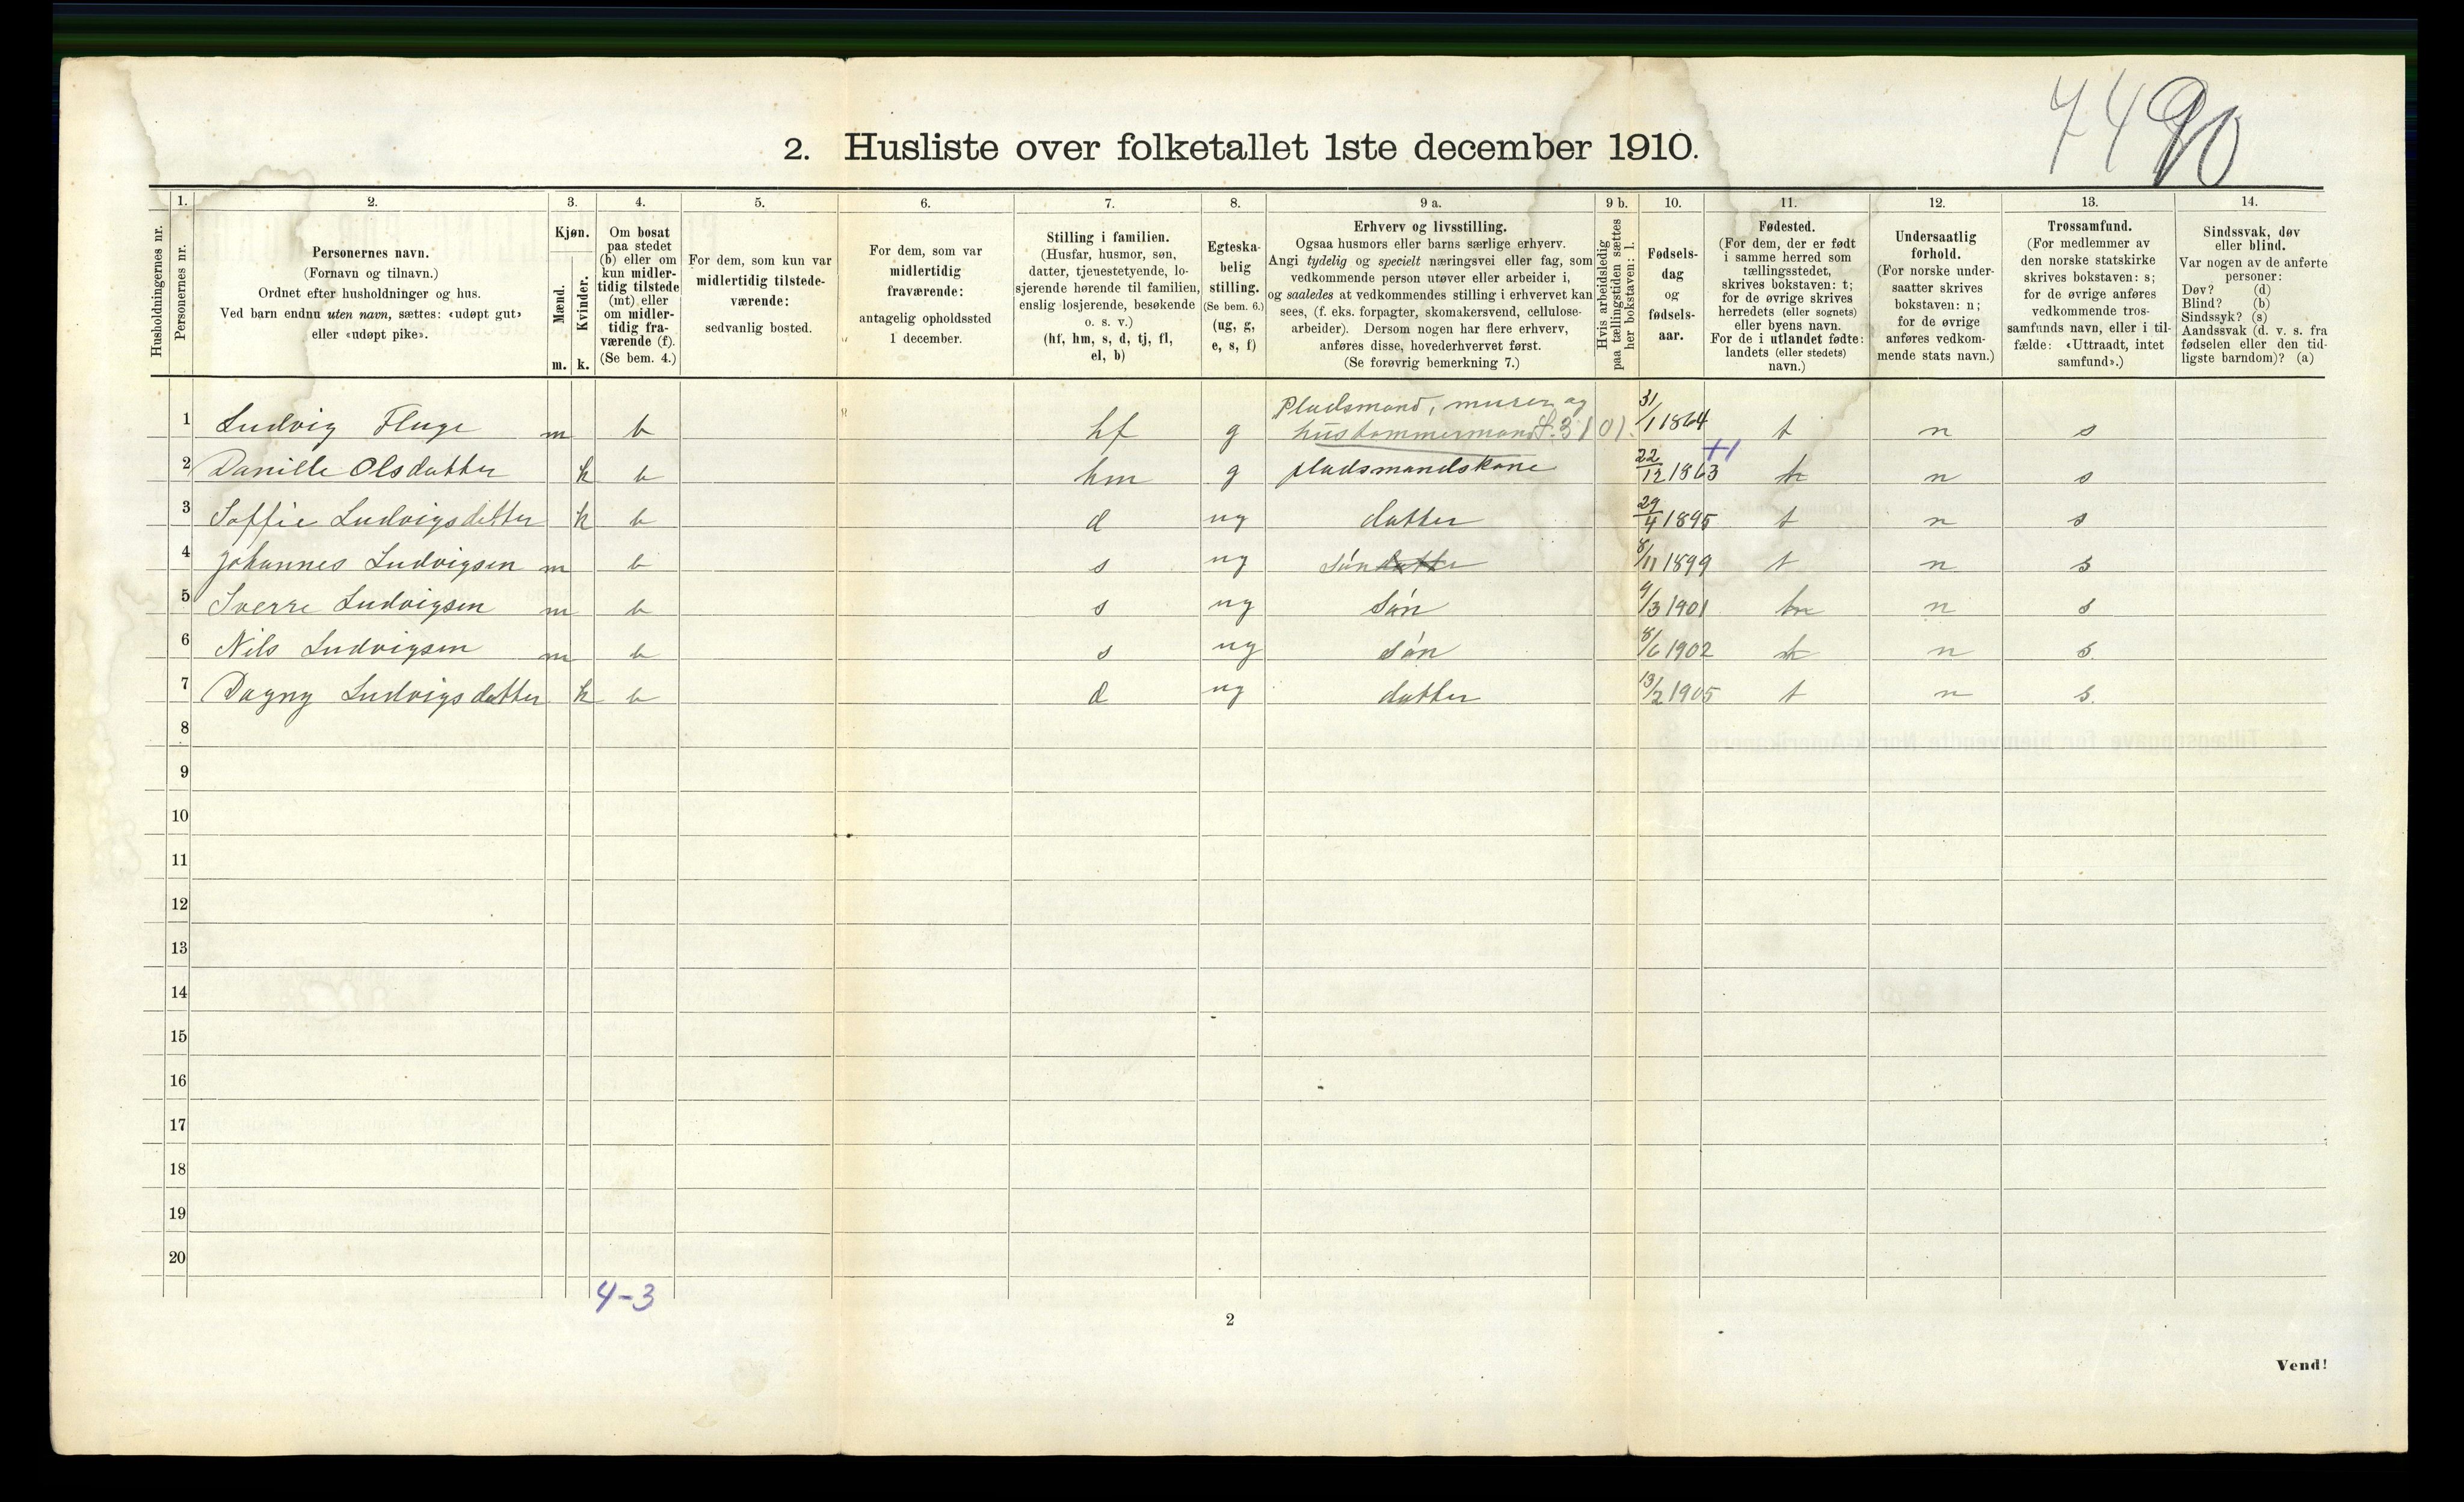 7490
2. Husliste over folketallet 1ste december 1910.
Husholdningernes nr.
1. Personernes nr.
2. Personernes navn.
(Fornavn og tilnavn.)
Ordnet efter husholdninger og hus.
Ved barn endnu uten navn, sættes: «udøpt gut»
eller «udøpt pike».
3. Kjøn.
Mænd. Kvinder.
m. k.
4. Om bosat
paa stedet
(b) eller om
kun midler-
tidig tilstede
(mt) eller
om midler-
tidig fra-
værende (f).
(Se bem. 4.)
5. For dem, som kun var
midlertidig tilstede-
værende:
sedvanlig bosted.
6. For dem, som var
midlertidig
fraværende:
antagelig opholdssted
1 december.
7. Stilling i familien.
(Husfar, husmor, søn,
datter, tjenestetyende, lo-
sjerende hørende til familien,
enslig losjerende, besøkende
o. s. v.)
(hf, hm, s, d, tj, fl,
el, b)
8. Egteska-
belig
stilling.
(Se bem. 6.)
(ug, g,
e, s, f)
9 a. Erhverv og livsstilling.
Ogsaa husmors eller barns særlige erhverv.
Angi tydelig og specielt næringsvei eller fag, som
vedkommende person utøver eller arbeider i,
og saaledes at vedkommendes stilling i erhvervet kan
sees, (f. eks. forpagter, skomakersvend, cellulose-
arbeider). Dersom nogen har flere erhverv,
anføres disse, hovederhvervet først.
(Se forøvrig bemerkning 7.)
9 b. Hvis arbeidsledig
paa tællingstiden sættes
her bokstaven: l.
10. Fødsels-
dag
og
fødsels-
aar.
11. Fødested.
(For dem, der er født
i samme herred som
tællingsstedet,
skrives bokstaven: t;
for de øvrige skrives
herredets (eller sognets)
eller byens navn.
For de i utlandet fødte:
landets (eller stedets)
navn.)
12. Undersaatlig
forhold.
(For norske under-
saatter skrives
bokstaven: n;
for de øvrige
anføres vedkom-
mende stats navn.)
13. Trossamfund.
(For medlemmer av
den norske statskirke
skrives bokstaven: s;
for de øvrige anføres
vedkommende tros-
samfunds navn, eller i til-
fælde: «Uttraadt, intet
samfund».)
14. Sindssvak, døv
eller blind.
Var nogen av de anførte
personer:
Døv? (d)
Blind? (b)
Sindssyk? (s)
Aandssvak (d. v. s. fra
fødselen eller den tid-
ligste barndom)? (a)
1 Ludvig Fluge m b hf g Pladsmand, murer og hustømmermand 31/1 1864 t n s
2 Danille Olsdatter k b hm g pladsmandskone 22/12 1863 n s
3 Soffie Ludvigsdatter k b d ug datter 29/4 1895 t n s
4 Johannes Ludvigsen m b s ug søn 8/11 1899 t n s
5 Sverre Ludvigsen m b s ug søn 9/3 1901 n s
6 Nils Ludvigsen m b s ug søn 8/6 1902 n s
7 Dagny Ludvigsdatter k b d ug datter 13/2 1905 t n s
8
9
10
11
12
13
14
15
16
17
18
19
20
4-3
2
Vend!